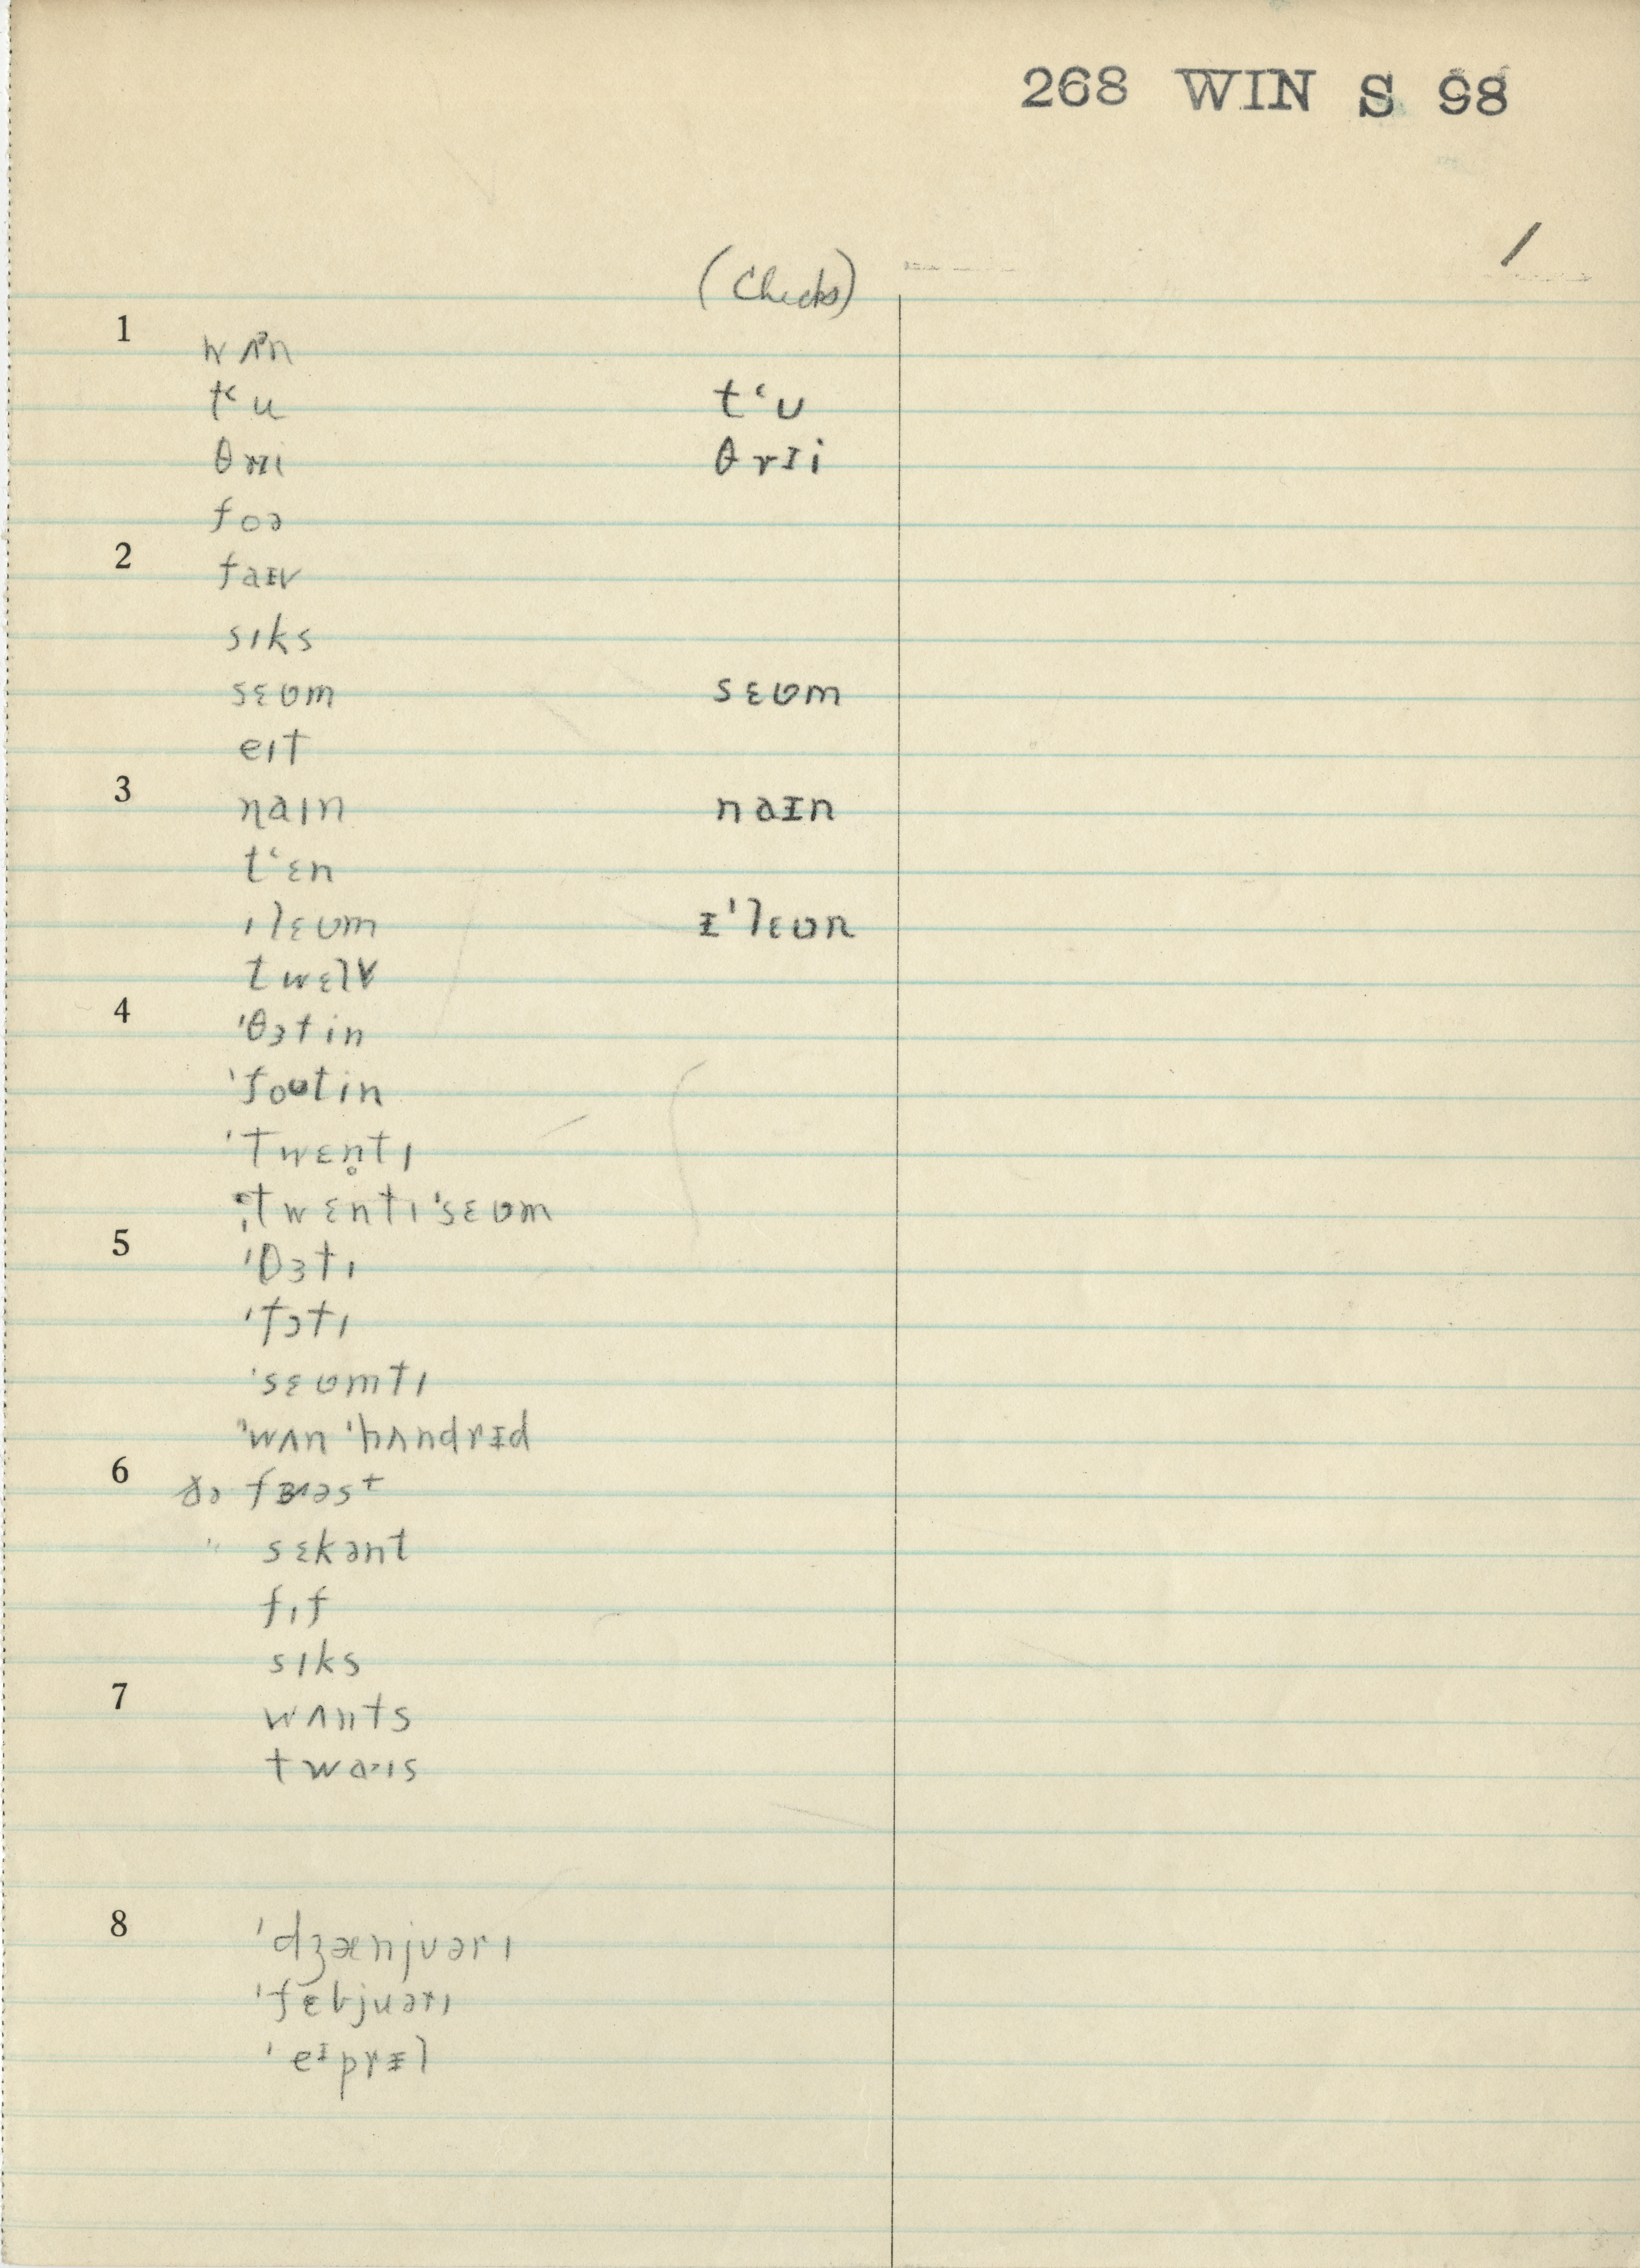 268 WIN S 98
/
(Checks)
1
wʌᵊn
tʻu tʻʊ
θrɪi θrɪi
foə
2
faɪv
sɪks
sɛʋm sɛʋm
eɪt
3
naɪn naɪn
tʻɛn
ɪlɛʋm ɪˈlɛʋn
twɛlv
4
ˈθɜtin
ˈfoʊtin
ˈtwɛn̥tɪ
ˌtwɛntɪˈsɛʋm
5
ˈθɜtɪ
ˈfɔtɪ
ˈsɛʋmtɪ
ˈwʌn ˈhʌndrɪd
6
ðə fɜɪəst
" sɛkənt
fɪf
sɪks
7
wʌnts
twaˑɪs
8
ˈdʒænjʊərɪ
ˈfɛbjuərɪ
ˈeɪprɪl